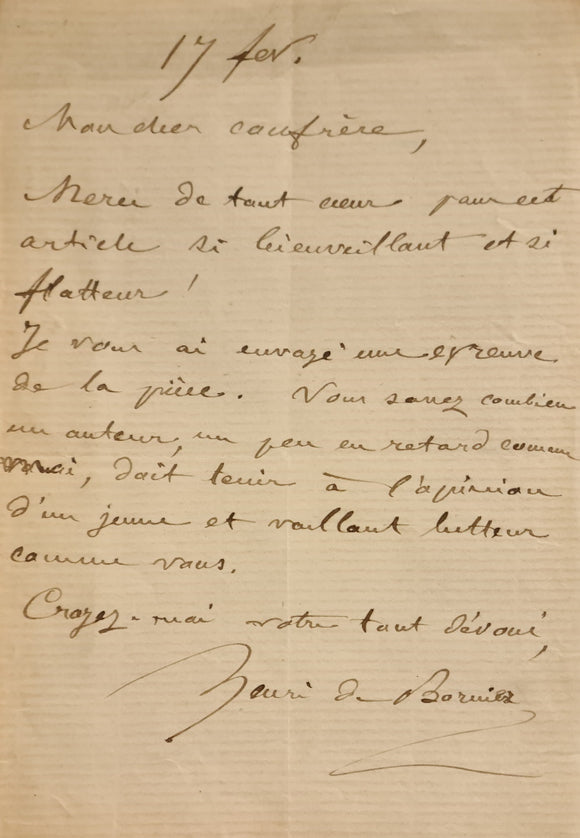 17 fev.
Mon cher confrère,
Merci de tout cœur pour cet
article si bienveillant et si
flatteur !
Je vous ai envoyé une épreuve
de la pièce. Vous savez combien
un auteur, un peu en retard comme
moi, doit tenir à l'opinion
d'un jeune et vaillant lutteur
comme vous.
Croyez-moi votre tout dévoué,
Henri de Bornier